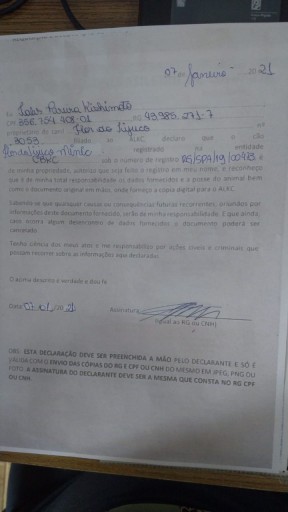 07 de Janeiro de 2021
Eu Laís Pereira Kishimoto
CPF 356.754.908-01 RG 43.985.271-7
proprietário do canil Flor do Lípuos
3053 filiado ao ALKC declaro que o cão
registrado na entidade
CBKC sob o número de registro RS/SPA/19/00923 é
de minha propriedade, autorizo que seja feito o registro em meu nome, e reconheço
que é de minha total responsabilidade os dados fornecidos e a posse do animal bem
como o documento original em mãos, onde forneço a cópia digital para o ALKC.
Sabendo-se que quaisquer causas ou consequências futuras recorrentes, oriundos por
informações deste documento fornecido, serão de minha responsabilidade. E que ainda,
caso ocorra algum desencontro de dados fornecidos o documento poderá ser
cancelado.
Tenho ciência dos meus atos e me responsabilizo por ações cíveis e criminais que
possam recorrer sobre as informações aqui declaradas.
O acima descrito é verdade e dou fé.
Data 07/01/2021 Assinatura
(igual ao RG ou CNH)
OBS: ESTA DECLARAÇÃO DEVE SER PREENCHIDA A MÃO PELO DECLARANTE E SÓ É
VÁLIDA COM O ENVIO DAS CÓPIAS DO RG E CPF OU CNH DO MESMO EM JPEG, PNG OU
FOTO. A ASSINATURA DO DECLARANTE DEVE SER A MESMA QUE CONSTA NO RG CPF
OU CNH.